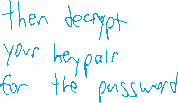 then decrypt
your keypair
for the password